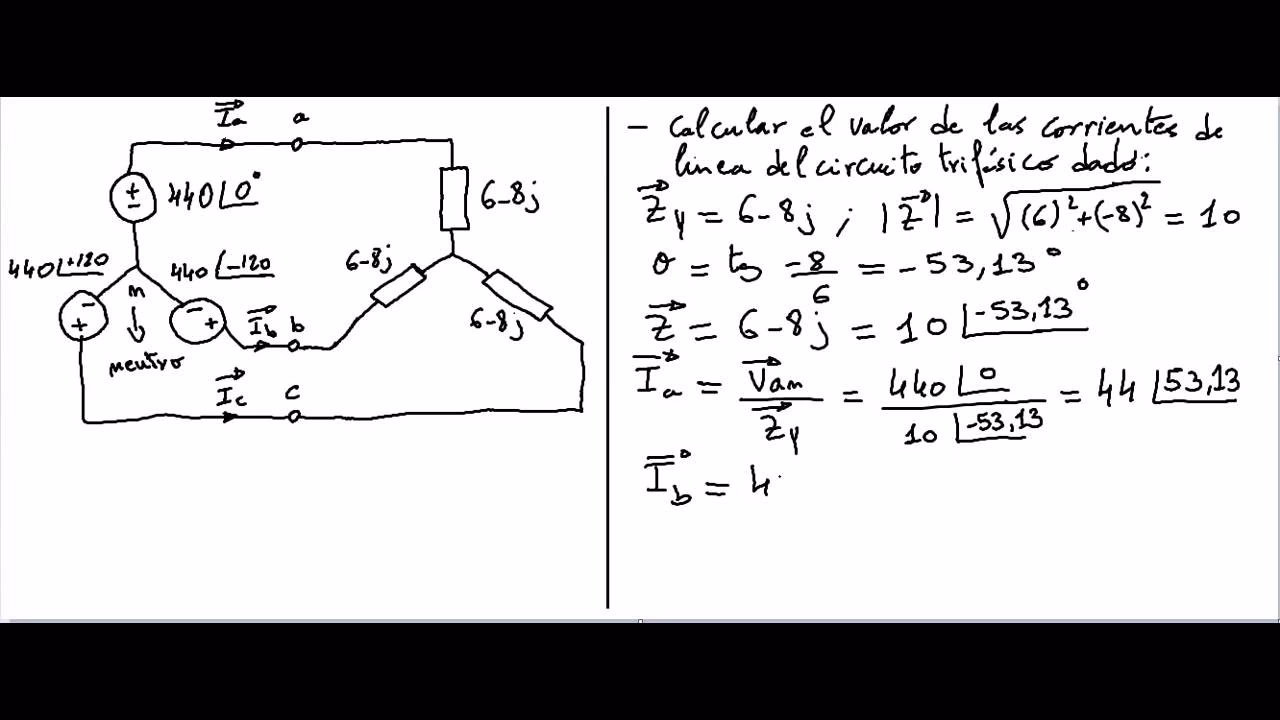 Ia a
440∠0°
6-8j
440∠+120
440∠-120
6-8j
n
6-8j
Ib b
neutro
Ic c
- Calcular el valor de las corrientes de
linea del circuito trifásico dado:
Zy = 6-8j ; |Z| = √(6)²+(-8)² = 10
θ = tg -8/6 = -53,13°
Z = 6-8j = 10∠-53,13°
Ia = Van/Zy = 440∠0/10∠-53,13 = 44∠53,13
Ib = 4